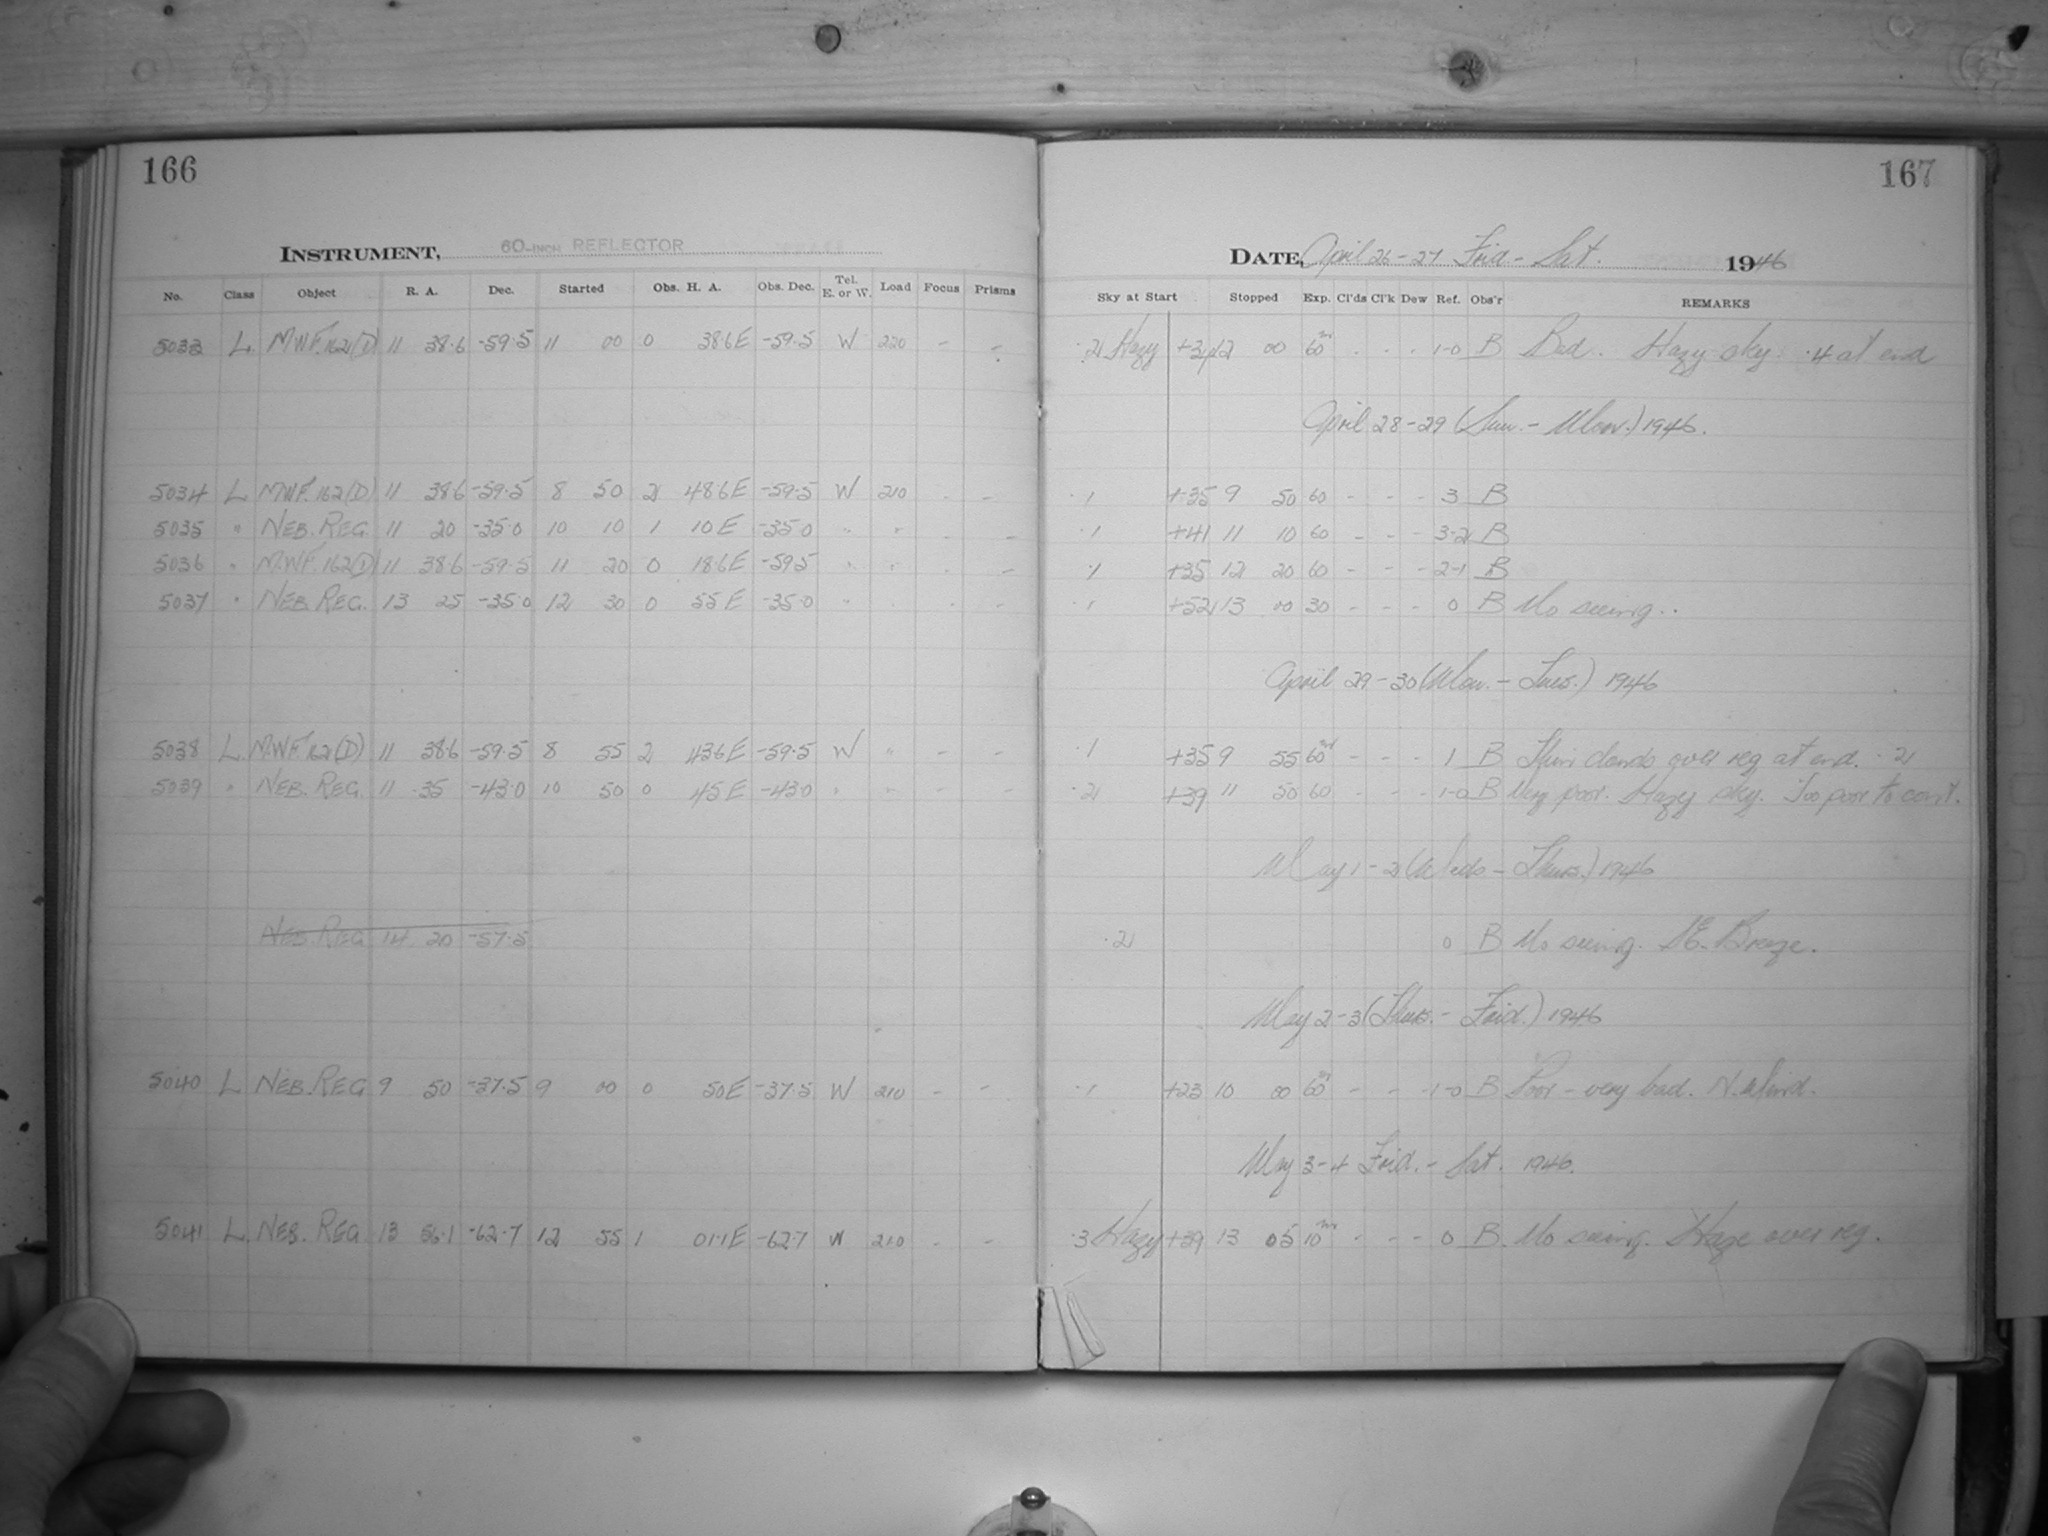 166
INSTRUMENT, 60-INCH REFLECTOR
No. Class Object R. A. Dec. Started Obs. H. A. Obs. Dec. Tel. E. or W. Load Focus Prisms
5033 L. MWF.162(D) 11 38.6 -59.5 11 00 0 38.6E -59.5 W 220 - -
5034 L MWF.162(D) 11 38.6 -59.5 8 50 2 48.6E -59.5 W 210 - -
5035 " NEB.REG. 11 20 -35.0 10 10 1 10E -35.0 " " - -
5036 " MWF.162(D) 11 38.6 -59.5 11 20 0 18.6E -59.5 " " - -
5037 " NEB.REG. 13 25 -35.0 12 30 0 55E -35.0 " " - -
5038 L. MWF.162(D) 11 38.6 -59.5 8 55 2 43.6E -59.5 W " - -
5039 " NEB.REG. 11 35 -43.0 10 50 0 45E -43.0 " " - -
NEB.REG 14 20 -57.5
5040 L NEB.REG 9 50 -37.5 9 00 0 50E -37.5 W 210 - -
5041 L. NEB.REG. 13 56.1 -62.7 12 55 1 01.1E -62.7 W 210 - -
167
DATE, April 26-27 Frid - Sat. 1946
Sky at Start Stopped Exp. Cl'ds Cl'k Dew Ref. Obs'r REMARKS
.2 Hazy +34 12 00 60m . . . 1-0 B Bad. Hazy sky. .4 at end
April 28-29 (Sun.-Mon.) 1946.
.1 +35 9 50 60 - - - 3 B
.1 +41 11 10 60 - - - 3-2 B
.1 +35 12 20 60 - - - 2-1 B
.1 +52 13 00 30 - - - 0 B No seeing.
April 29-30 (Mon.-Tues.) 1946
.1 +35 9 55 60m - - - 1 B Thin clouds over reg at end. .2
.2 +39 11 50 60 - - - 1-0 B Very poor. Hazy sky. Too poor to cont.
May 1-2 (Weds.-Thurs.) 1946
.2 0 B No seeing. SE. Breeze.
May 2-3 (Thurs.-Frid.) 1946
.1 +23 10 00 60m - - - 1-0 B Poor - very bad. N. Wind.
May 3-4 Frid.-Sat. 1946.
.3 Hazy +39 13 05 10m - - - 0 B. No seeing. Haze over reg.